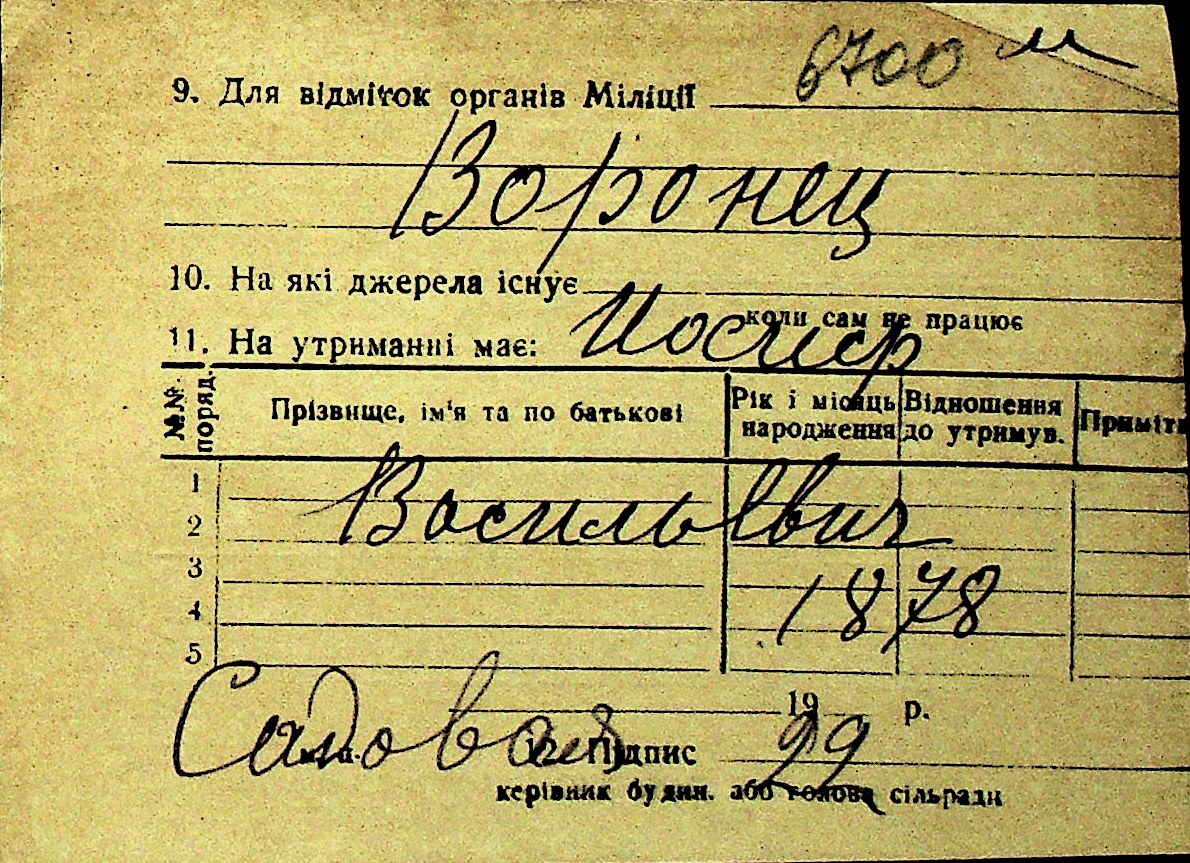 6700 м
9. Для відміток органів Міліції
Воронец
10. На які джерела існує
коли сам не працює
11. На утриманні має:
№№ поряд. Прізвище, ім'я та по батькові Рік і місяць народження Відношення до утримув. Приміти
1
Васильевич
2
3
1878
4
5
19 р.
Садовая 22
12. Підпис
керівник будин. або голова сільради